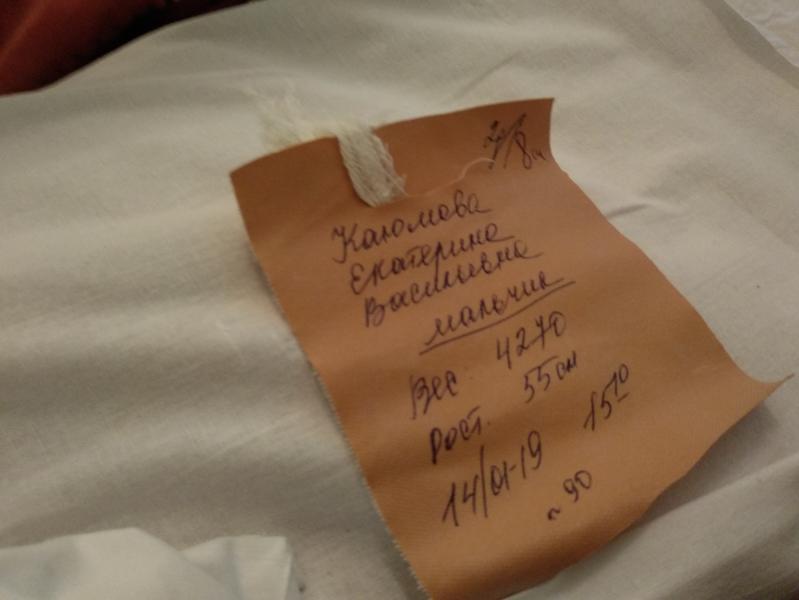 7/8ч
Каюмова
Екатерина
Васильевна
мальчик
Вес 4270
Рост. 55см
14/01-19 15 10
~ 90